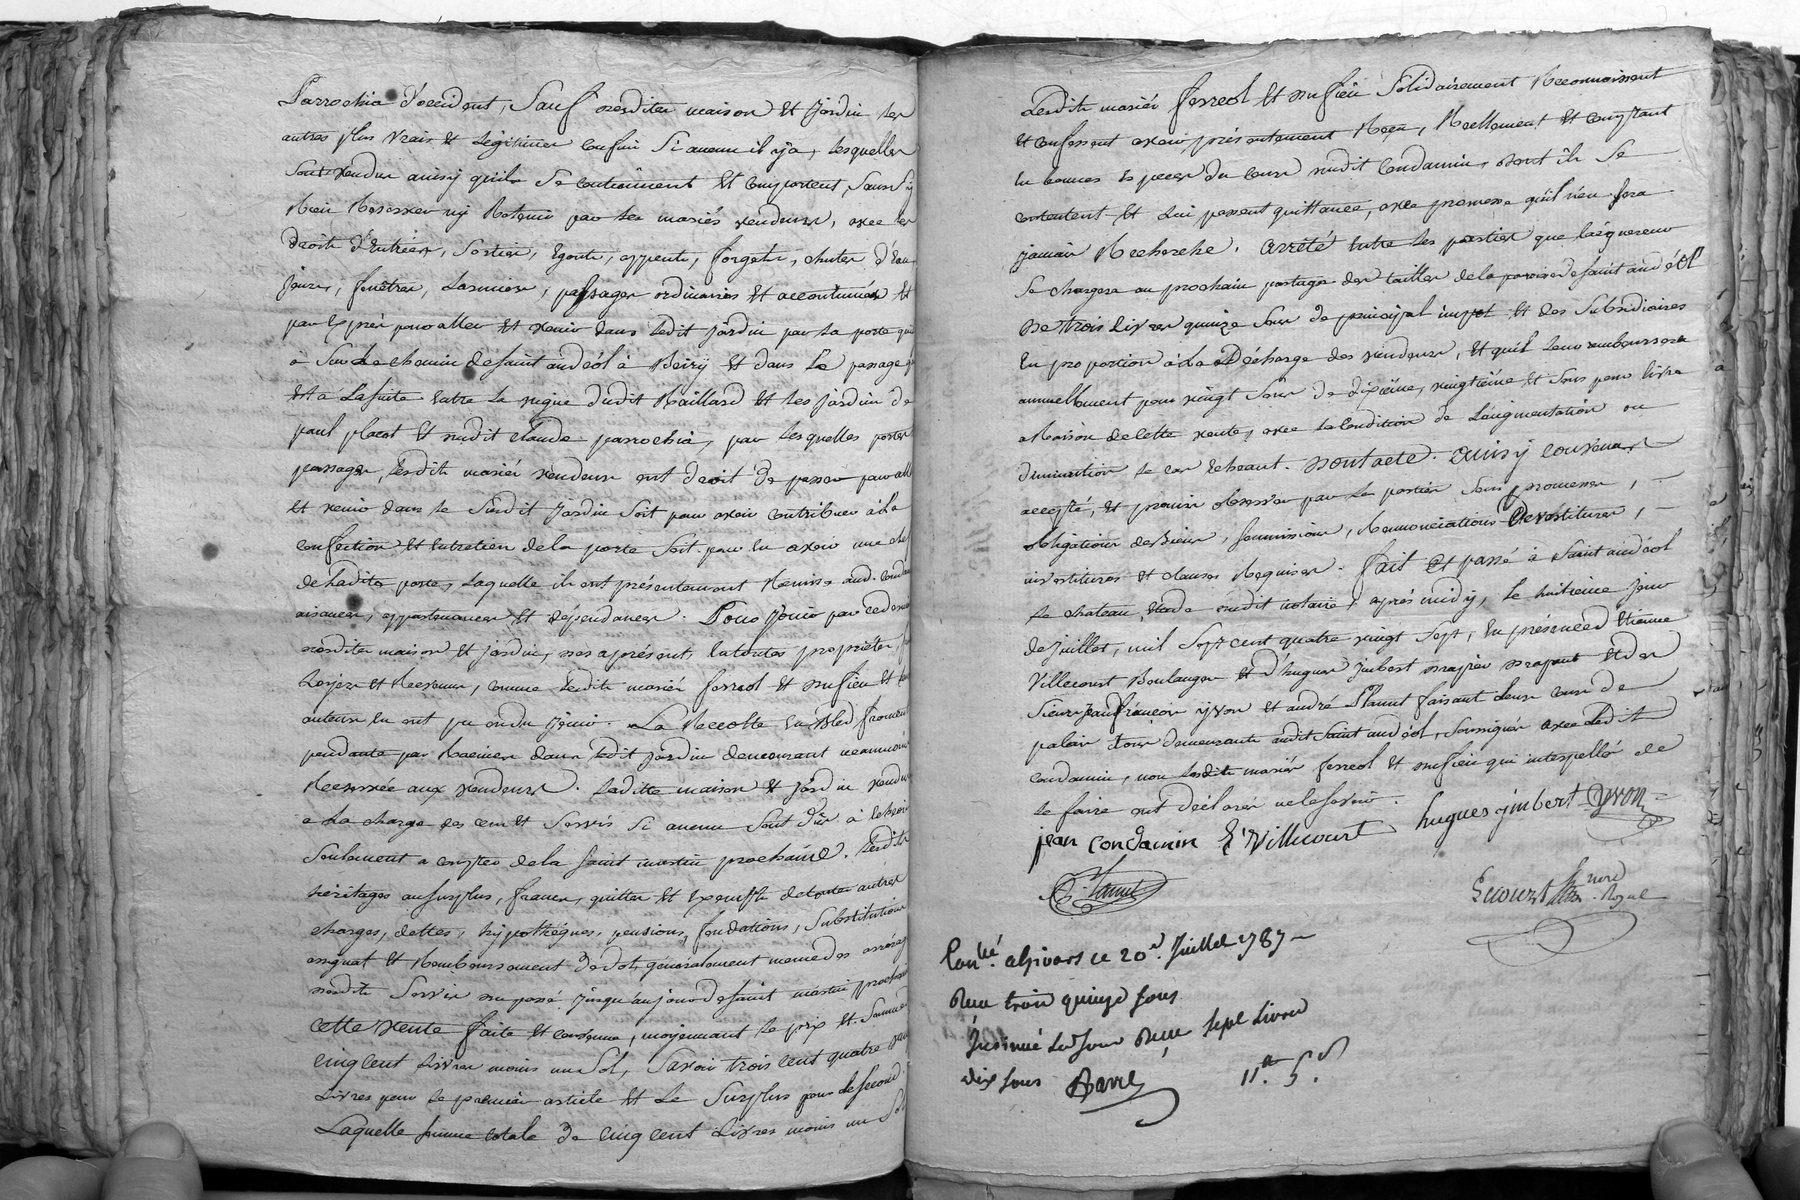 Parrochia d'occident, Sauf desdites maison et jardin les
autres plus vrais et légitimes confins si aucun il y a, lesquelles
sont vendus ainsy qu'ils se contiennent et comportent, sans s'y
Rien Reserver ny Retenir par les mariés vendeurs, avec les
droits d'Entrées, sorties, Egouts, appents, forgets, chutes d'Eau
jours, fenêtres, Larmiers, passages ordinaires et accoutumés et
par Exprès pour aller et venir dans ledit jardin par la porte qui
a sur le chemin de saint andéol à Beiry et dans le passage qui
est à la suite entre la vigne dudit Raillard et les jardins de
paul placot et dudit claude parrochia, par lesquelles portes
passages, lesdits mariés vendeurs ont droit de passer pour aller
et venir dans le susdit jardin soit pour avoir contribué à la
confection et entretien de la porte soit pour en avoir une clef
de laditte porte, laquelle ils ont présentement Remise aud. Condamin
aisances, appartenances et dépendances. Pour jouir par ledemeure
desdites maison et jardin, dès à présent, en toutes propriétés,
Loyers et Revenus, comme lesdits mariés ferreol et mefieu et leurs
auteurs en ont pu ou du jouir. La Recolte en Bled froment
pendante par Racines dans ledit jardin demeurant néanmoins
Reservée aux vendeurs. Laditte maison et jardin vendus
à la charge des cens et servis si aucuns sont dûs à leschoir
seulement a compter de la saint martin prochaine. Lesdits
héritages au surplus, francs, quittes et Exempts de toutes autres
charges, dettes, hypothèques, pensions, fondations, substitutions
assignat et Remboursement de dot, généralement mêmes des arrérages
desdits servis du passé jusqu'au jour de saint martin prochain
cette vente faite et convenue, moyennant le prix et somme
cinq cent Livres moins un sol, savoir trois cent quatre vingt
Livres pour le premier article et le surplus pour le second.
Laquelle somme totale de cinq cent Livres moins un sol
Lesdits mariés ferreol et mefieu solidairement Reconnoissent
et confessent avoir présentement Reçu, Réellement et comptant
en bonnes especes du cours dudit Condamin, dont ils se
contentent et lui passent quittance, avec promesse qu'il n'en sera
jamais Recherché. arrêté entre les parties que l'acquereur
se chargera au prochain partage des tailles de la paroisse de saint andéol
de trois livres quinze sous de principal impot et des subsidiaires
En proportion à la Décharge des vendeurs, et qu'il leur remboursera
annuellement pour vingt sous de dixième, vingtième et sous pour livre
a Raison de cette vente, avec la condition de l'augmentation ou
diminution le cas Echeant. Dont acte. ainsy convenu,
accepté, et promis observer par les parties sous promesses,
obligations de Biens, soumissions, Renonciations Devestitures,
investitures et clauses Requises. fait et passé à saint andéol
le chateau, étude dudit notaire, après midy, le huitieme jour
de juillet, mil sept cent quatre vingt sept, En présence d'Etienne
Villecourt Boulanger et d'hugues jmbert drapier drapant et des
sieurs jean françois yvon et andré Flanut faisant leurs cours de
palais tous demeurants audit saint andéol, soussignés avec ledit
condamin, non lesdits mariés ferreol et mefieu qui interpellés de
le faire ont déclaré ne le savoir.
jean condamin E. Villecourt hugues jmbert yvon
Lecourt nore Royal
Con.lé à Givors ce 20e. Juillet 1787
Reçu trois quinze sous
Insinué led jour Reçu sept Livres
dix sous Barre 11# 5s